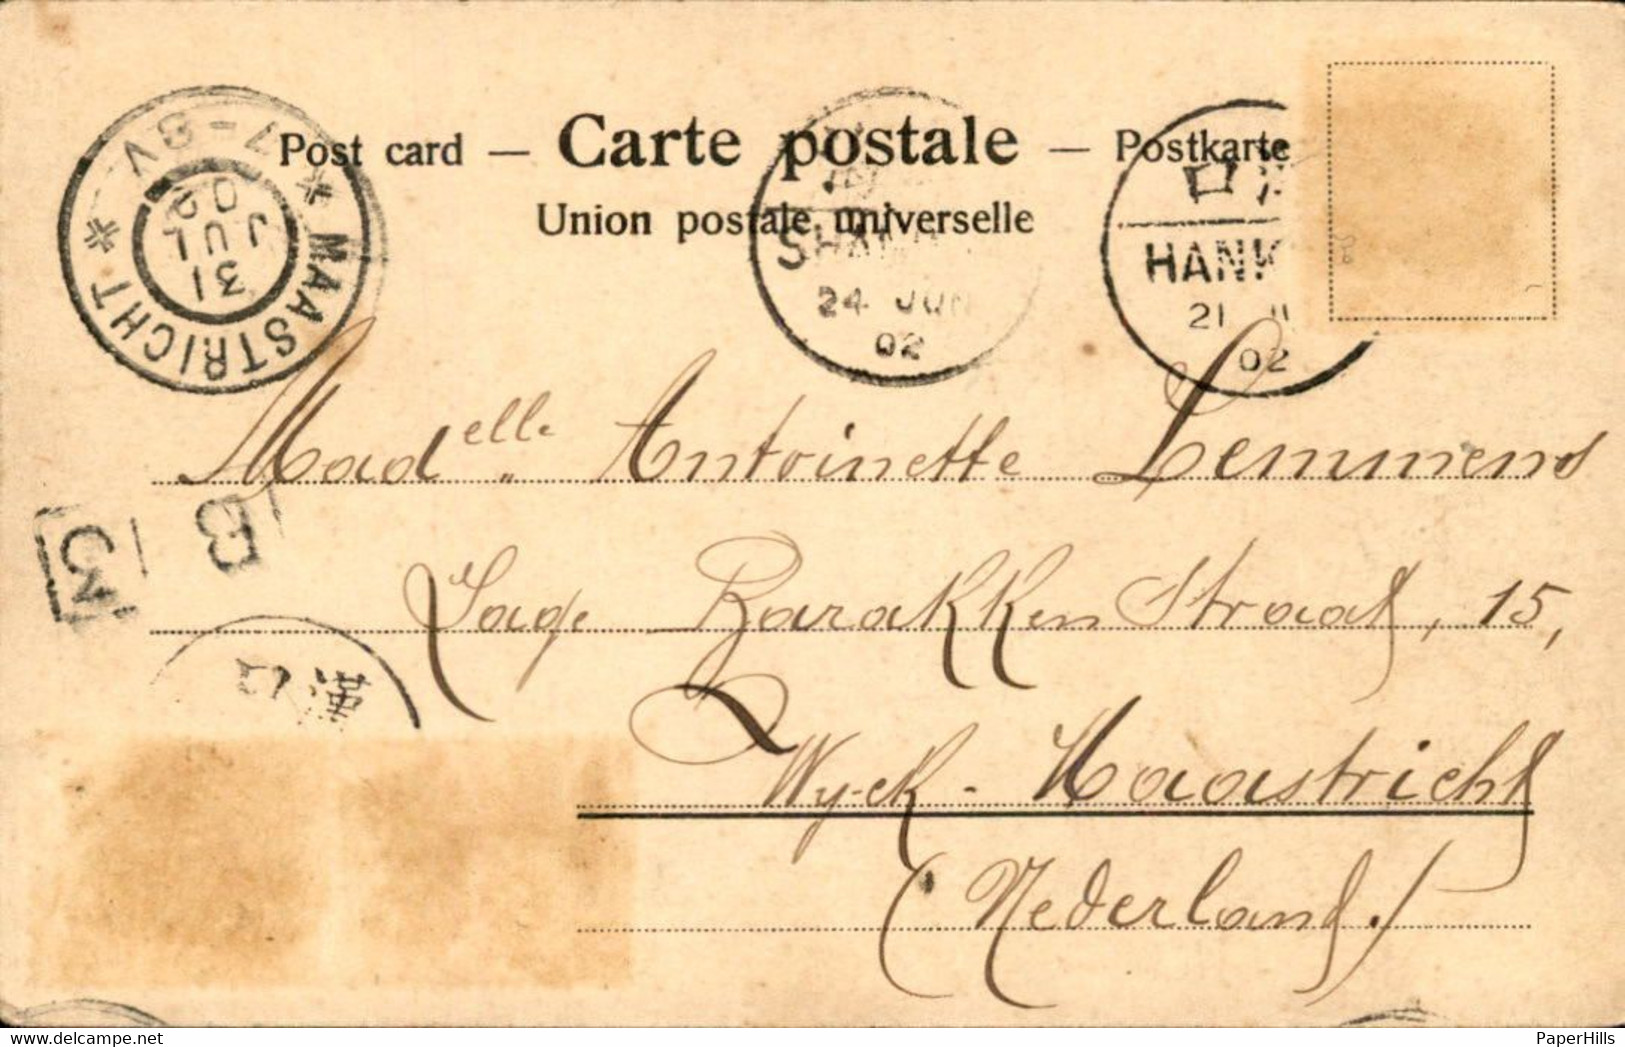 Post card — Carte postale — Postkarte
Union postale universelle
7-8V
* MAASTRICHT *
31
JUL
02
24 JUN
02
口
HANK
21
02
Madelle. Antoinette Lemmens
Lage Barakken Straat, 15,
Wyck-Maastricht
(Nederland.)
B
3
口漢
PaperHills